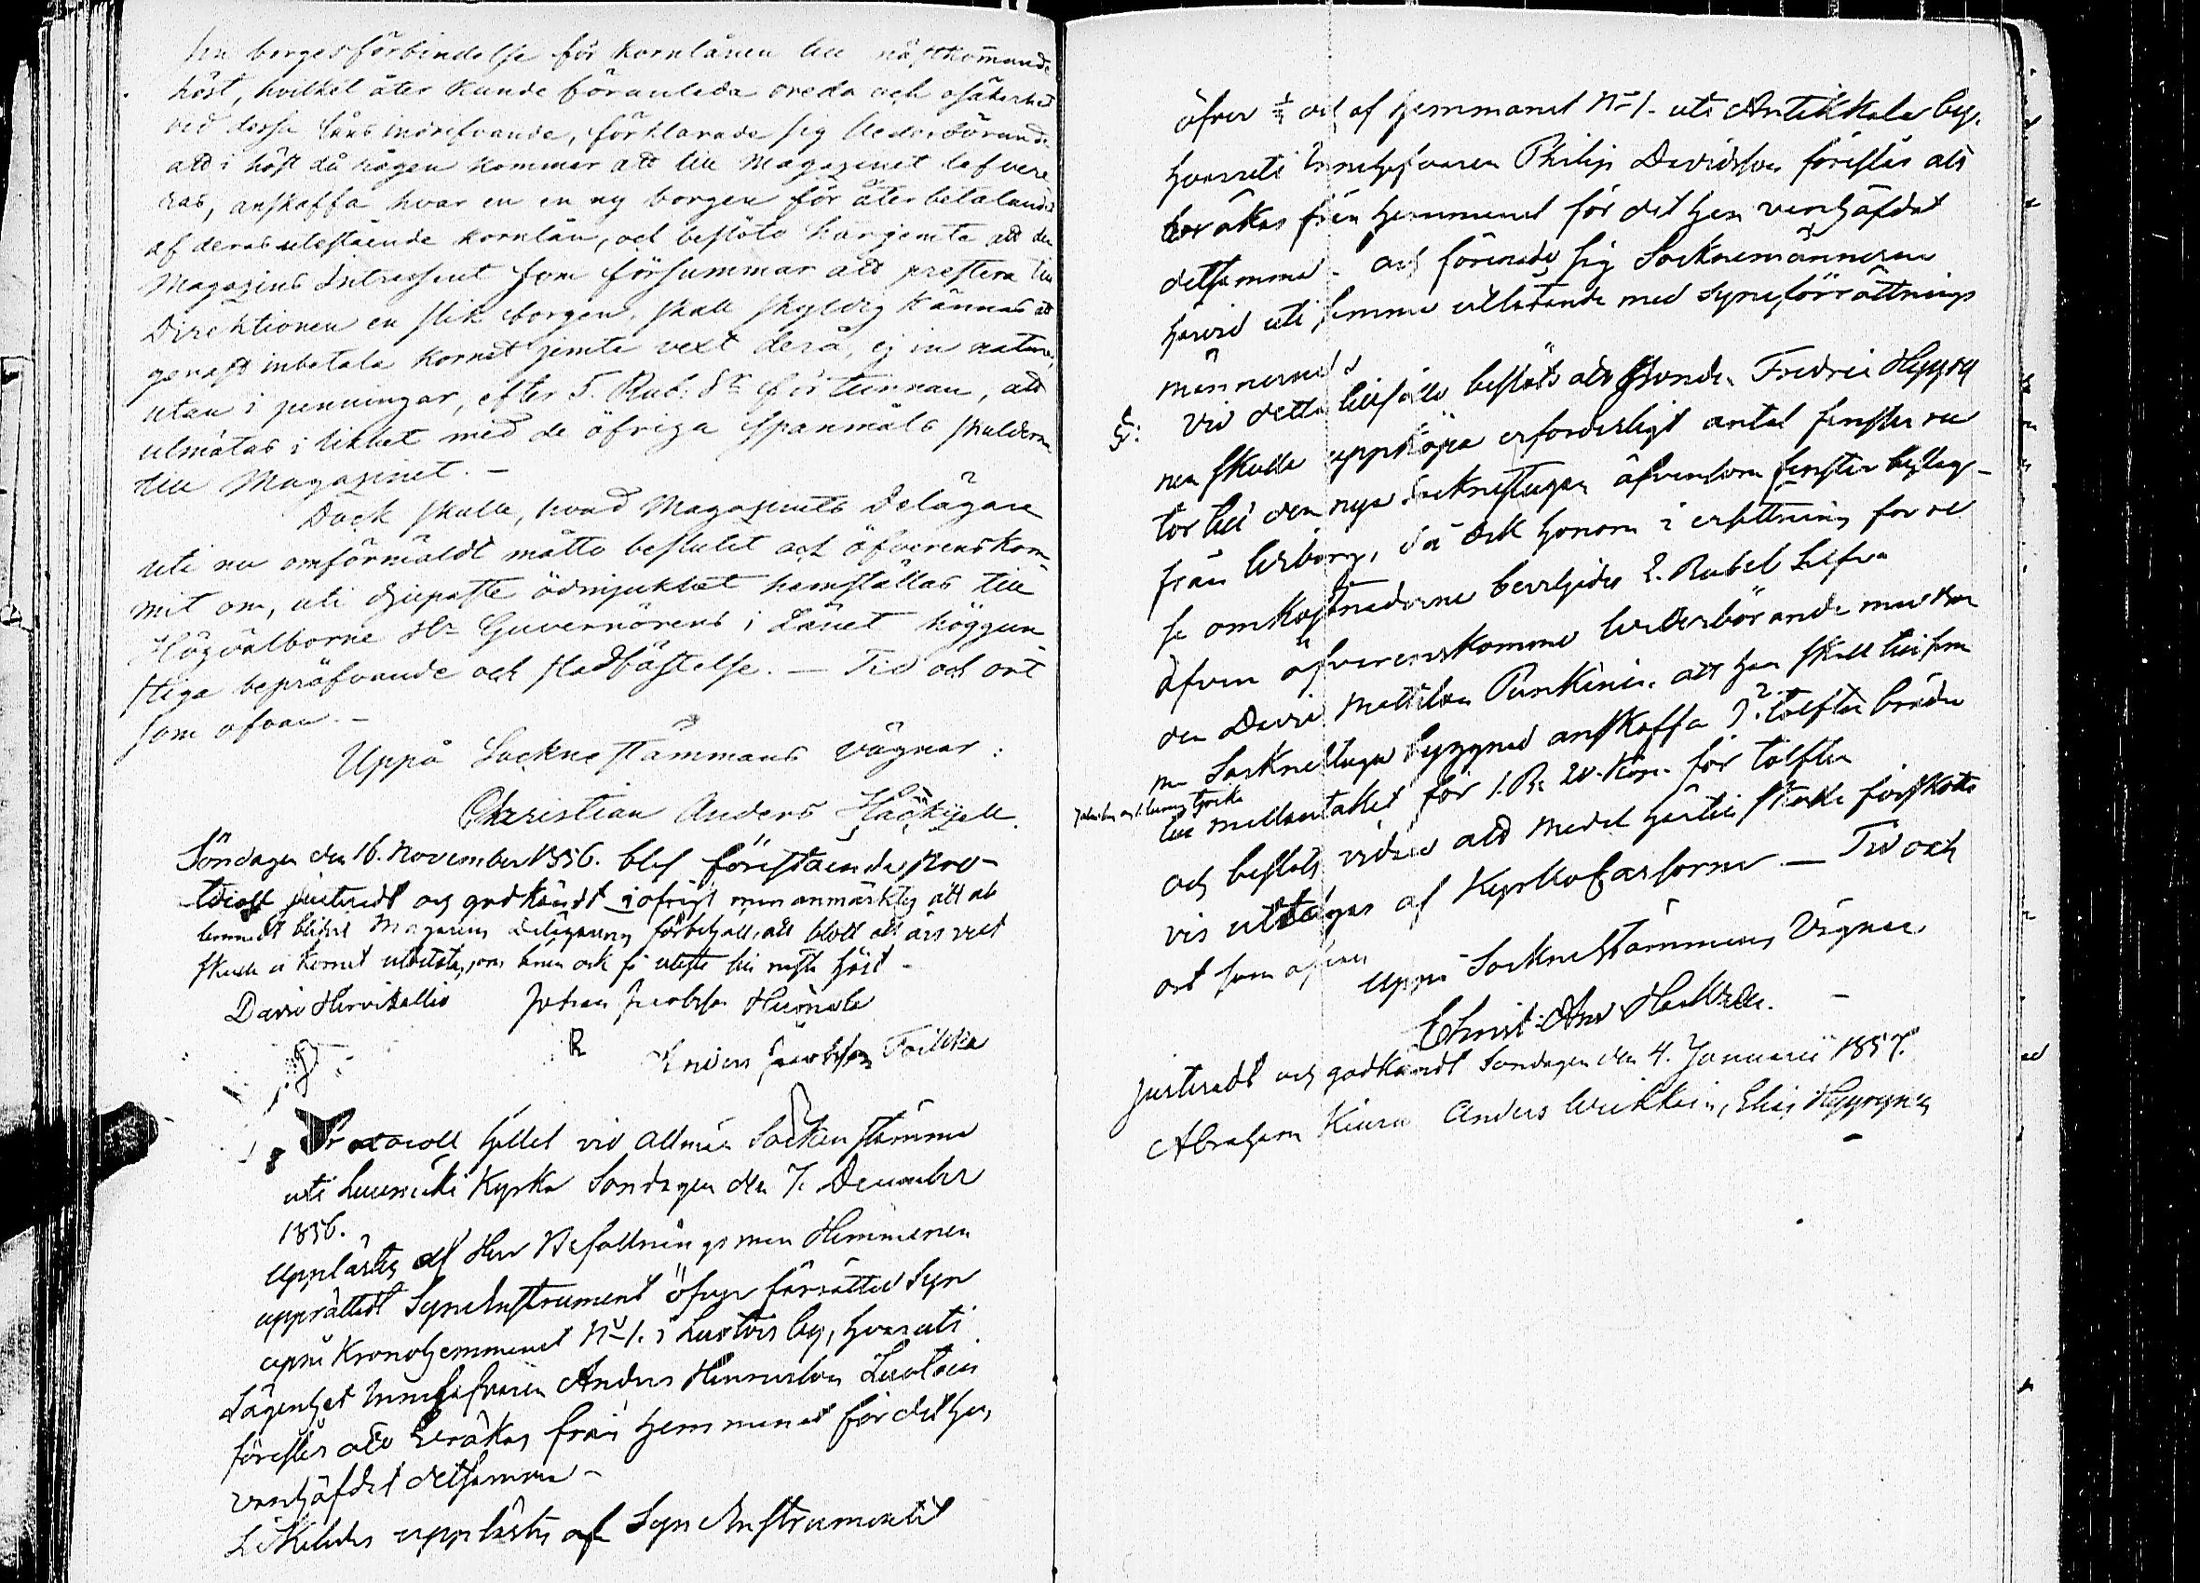 sin borgesförbindelse för kornlånen till nästkommande
höst, hvilket åter kunde föranleda oreda och osäkerhet
vid dessa låns indrifvande, förklarade sig Vederbörande
att i höst då rågen kommer att till Magazinet lefvere
ras, anskaffa hvar en en ny borgen för återbetalande
af deras utestående kornlån, och beslöto härjemte att den
Magazins Intressent som försummar att prestera till
Direktionen en slik borgen, skall skyldig kännas att
genast inbetala kornet jemte vext derå, ej in natura,
utan i penningar, efter 5. Rub. Sr för tunnan, att
utmätas i likhet med de öfriga spanmåls skulderna
till Magazinet. –
Dock skulle, hvad Magazinets Delägare
uti nu omförmäldt måtto beslutit och öfverenskom
mit om, uti djupaste ödmjukhet hemställas till
Högvälborne Hr Guvernörens i Länet höggun
stiga bepröfvande och stadfästelse. — Tid och ort
som ofvan. –
Uppå Sockne stämmans vägnar:
Christian Anders Hackzell.
Söndagen den 16. November 1856. blef förestående Pro-
tocoll justeradt och godkändt i öfrigt men anmärktes att
Magazins delägarne förbehöll, att blott
skulle
David Hirvikallio Johan Jacobsson
Anders Jacobsson Toikka
Protocoll hållet vid Allmän Sockenstämma
uti Luumäki Kyrka Söndagen den 7. December
1856.
Upplästes af Herr Befallningsman Himmanen
upprättadt Syneinstrument öfver förrättad Syn
uppå Kronohemmanet No 1. i by, hvaruti
Lägenhet Innehafvaren Anders Henriksson
föreslås att vräkas från hemmanet för det han
vanhäfdat detsamma –
Likaledes upplästes af Syn Instrumentet
öfver af hemmanet No 1. uti Antikkala by.
hvaruti Innehafvaren Philip Davidsson föreslås att
vräkas från hemmanet för det han vanhäfdat
detsamma – och förenade sig Socknemännerne
härvid uti samma utlåtande med Syneförrättnings
männernes
§: Vid detta tillfälle beslöts att Bonden Fredric Hyyry
nen skulle uppköpa erforderligt antal fenster ru
tor till den nya Socknestugan äfvensom fenster beslag –
från Wiborg, då ock honom i ersättning för re
se omkostnaderne beviljades 2. Rubel Silfver
Äfven öfverenskommo Vederbörande med
den David Mattsson Punkinen att han skall till
na Sockne stuge byggnad anskaffa tolfter bräder
till mellantaket för 1. R. 20. Kop. för tolften
och beslöts vidare att medel härtill skulle förskotts
vis uttagas af Kyrko Cassorne — Tid och
ort som ofvan
Uppå Socknestämmans Vägnar
Christ: And Hackzell. –
Justeradt och godkändt Söndagen den 4. Januarii 1857.
Abraham Kiuru Anders Elias Hyyrynen